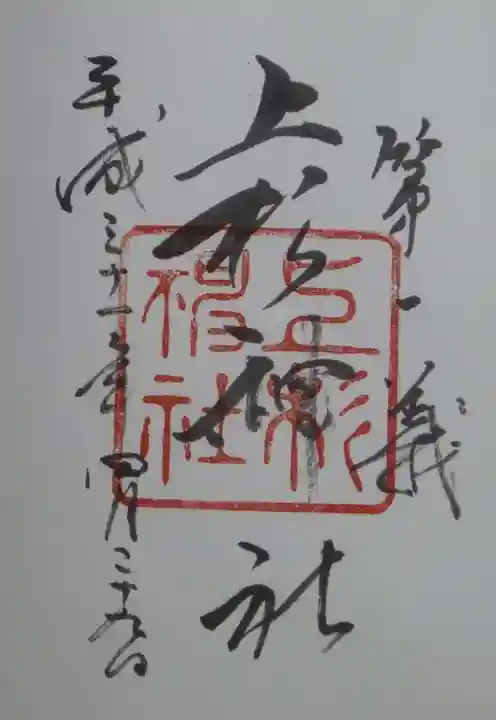 第一義
上杉神社
平成三十一年四月二十九日
上杉
神社